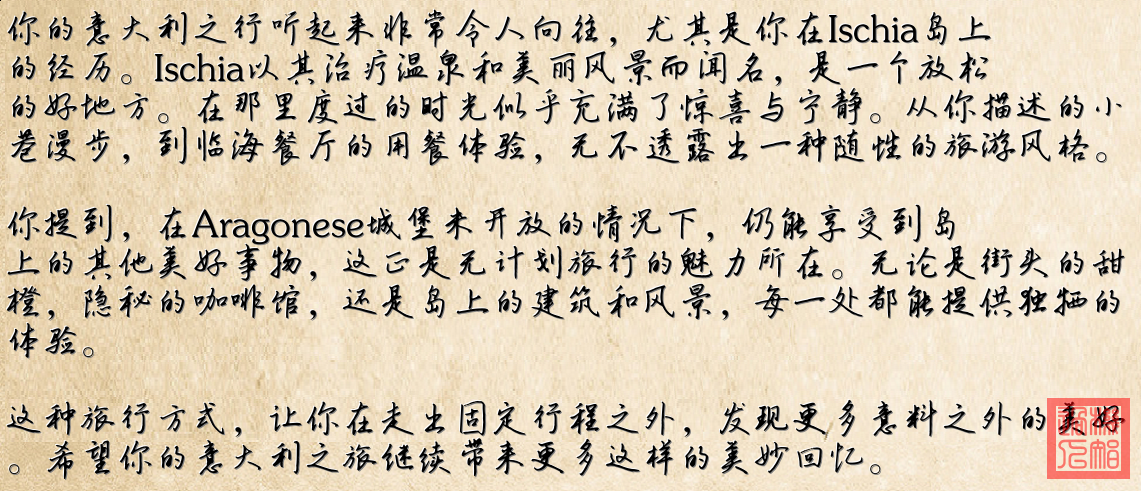 你的意大利之行听起来非常令人向往，尤其是你在Ischia岛上
的经历。Ischia以其治疗温泉和美丽风景而闻名，是一个放松
的好地方。在那里度过的时光似乎充满了惊喜与宁静。从你描述的小
巷漫步，到临海餐厅的用餐体验，无不透露出一种随性的旅游风格。
你提到，在Aragonese城堡未开放的情况下，仍能享受到岛
上的其他美好事物，这正是无计划旅行的魅力所在。无论是街头的甜
橙，隐秘的咖啡馆，还是岛上的建筑和风景，每一处都能提供独牺的
体验。
这种旅行方式，让你在走出固定行程之外，发现更多意料之外的美好
。希望你的意大利之旅继续带来更多这样的美妙回忆。